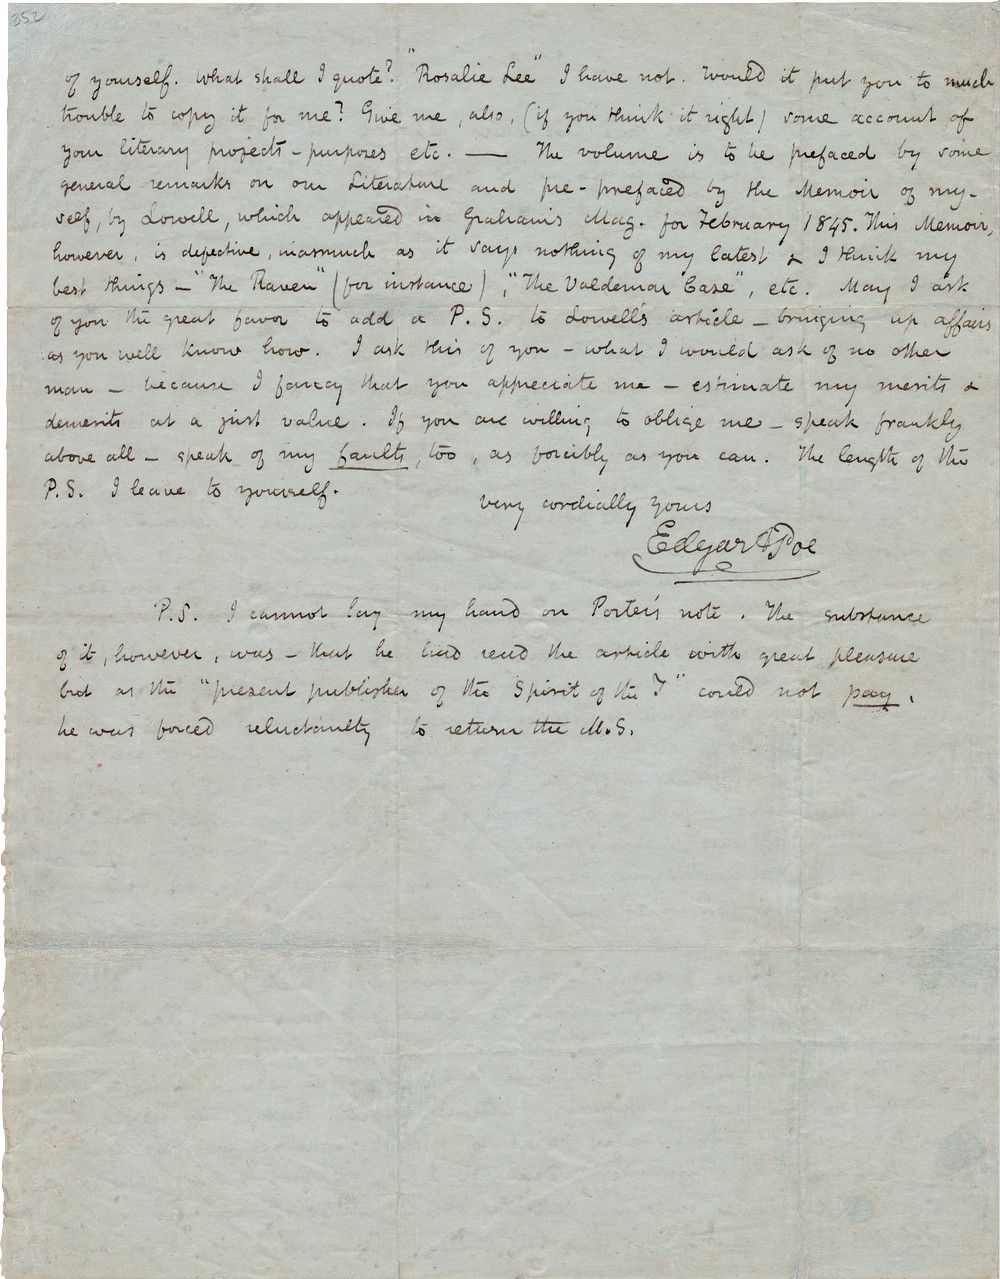 352
of yourself. What shall I quote? "Rosalie Lee" I have not. Would it put you to much
trouble to copy it for me? Give me, also, (if you think it right) some account of
your literary projects - purposes etc. — The volume is to be prefaced by some
general remarks on our Literature and pre-prefaced by the Memoir of my-
self, by Lowell, which appeared in Graham's Mag. for February 1845. This Memoir,
however, is defective, inasmuch as it says nothing of my latest & I think my
best things - "The Raven" (for instance), "The Valdemar Case", etc. May I ask
of you the great favor to add a P.S. to Lowell's article - bringing up affairs
as you well know how. I ask this of you - what I would ask of no other
man - because I fancy that you appreciate me - estimate my merits &
demerits at a just value. If you are willing to oblige me - speak frankly
above all - speak of my faults, too, as forcibly as you can. The length of the
P.S. I leave to yourself.
Very cordially yours
Edgar A Poe
P.S. I cannot lay my hand on Porter's note. The substance
of it, however, was - that he had read the article with great pleasure
but as the "present publisher of the Spirit of the T" could not pay,
he was forced reluctantly to return the M.S.